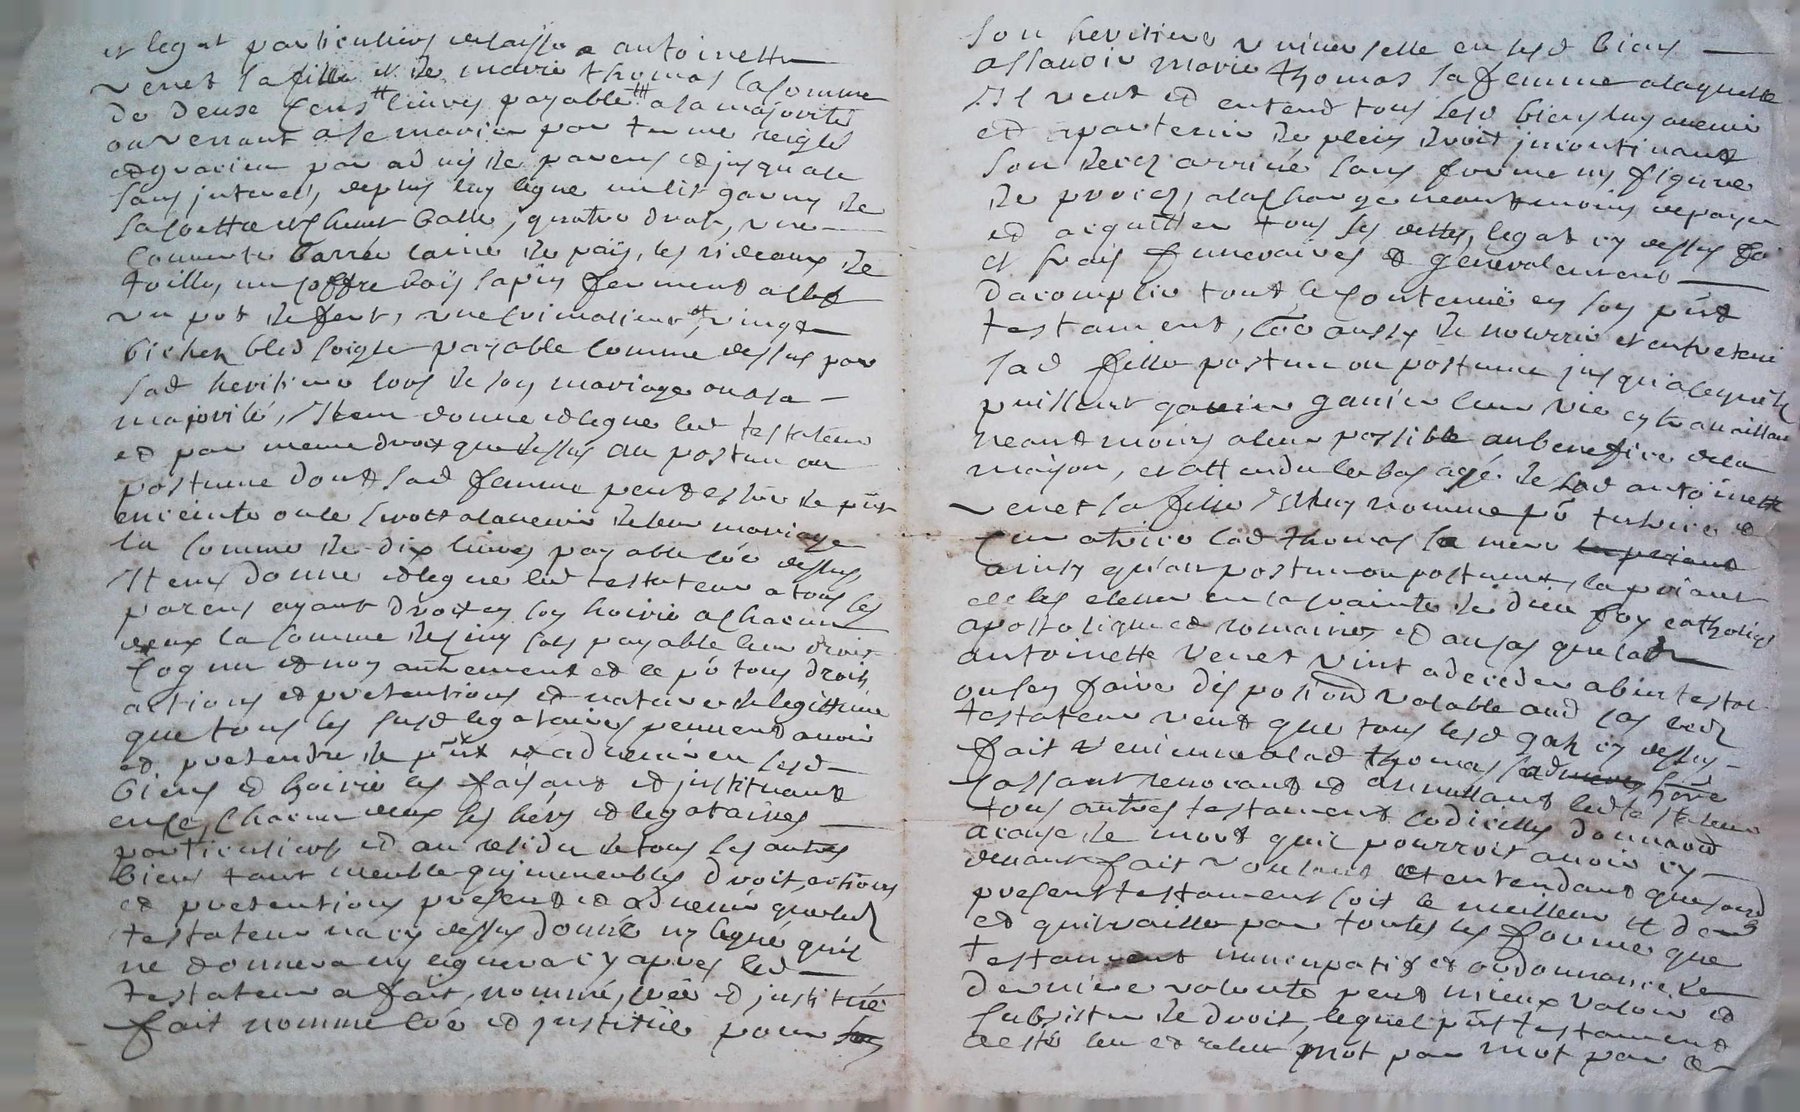 et legat particuliers delaisse a antoinette
venet sa fille et de marie thomas la somme
de deuse cens livres payable a sa majorité
ou venant a se marier par terme reiglé
et par advis de parens et jusque
sans interest, deplus luy legue un lit garny de
sa coette et chevet balle, quatre draps, une
couverte barrée laine de païs, les rideaux de
toille, un coffre bois sapin fermend a clef
un pot de fert, une crimaliere et vingt
bichets bled soigle payable comme dessus par
sad heritiere lors de son mariage ou a sa
majorité, Item donne et legue led testateur
et par meme droit que dessus au postum ou
postume dont sad femme peut estre de pnt
enceinte ou le serott alavenir de leur mariage
la somme de dix livres payable coe dessus,
Item donne et legue led testateur a tous ses
parens ayant droit en son hoirie a chacun
deux la somme de cinq sols payable leur droit
cognu et non autrement et ce po tous droits
actions et pretentions et nature de legittime
que tous les susd legataires peuvent avoir
et pretendre de pnt et advenir en sesd
biens et hoirie les faisant et instituant
chacun deux ses hers et legataires
particuliers et au residu de tous ses autres
biens tant meubles qu'immeubles droits, actions
et pretentions present et advenir que led
testateur na cy dessus donné ny legué quil
ne donnera ny leguera cy apres led
testateur a fait, nommé, créé et institué
fait nomme cée et institue pour son
son heritiere universelle en sesd biens
assavoir marie thomas sa femme alaquelle
Il veut et entend tous sesd biens luy avenir
et apartenir de plein droit incontinant
son deces arrivé sans forme ny figure
de proces, alacharge neantmoins de payer
et acquitter tous ses dettes, legat cy dessus
et frais funeraires et generalement
dacomplir tout le contenu en son pnt
testament, coe aussy de nourrir et entretenir
sad fille postum ou postume jusqua ce quils
puissent gaeier ganier leur vie en travaillant
neantmoins aleur possible au benefice de la
maison, et attendu le bas age de lad antoinette
venet sa fille Il luy nomme po tutrice et
curatrice lad thomas sa mere
ainsy qu'au postum ou postume, la priant
de les elever en la crainte de dieu foy catholique
apostolique et romaine et au cas que lad
antoinette venet vint a deceder abintestat
ou sen faire disposition valable aud cas led
testateur veut que tous lesd gah cy dessus
fait vienne alad thomas sad here
cassant revocant et annullant led testateur
tous autres testament codicilles donnaon
acause de mort quil pourroit avoir cy
devant fait voulant et entendant que sond
present testament soit le meilleur et der
et quil vaille par toutes les forme que
testament nuncupatif et ordonnance de
derniere volonte peut mieux valoir et
subsister de droit, lequel pnt testament
a esté leu et releu mot par mot par